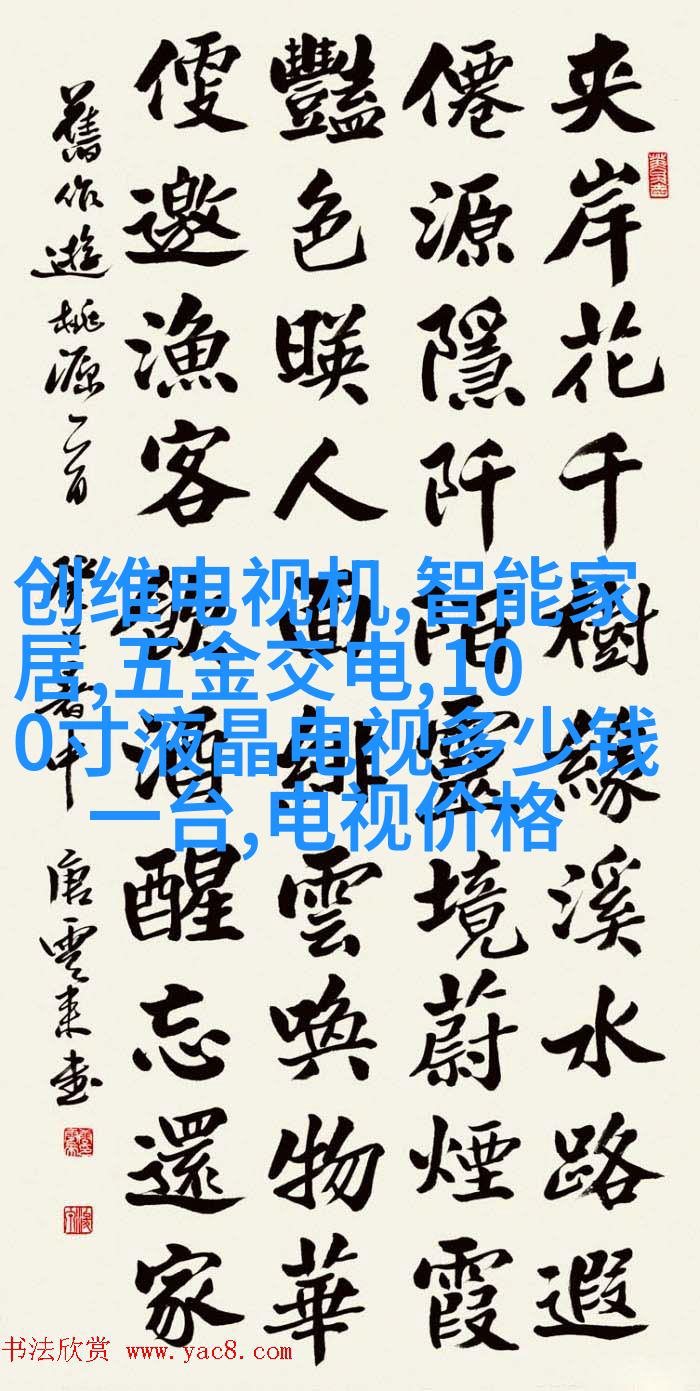 夹岸花千樹緣溪水路遐
僊源隱阡陌靈境蔚煙霞
豔色暎人面緋雲喚物華
便邀漁客酒醒忘還家
舊作遊桃源二首 唐雲来書
创维电视机,智能家
居,五金交电,10
0寸液晶电视多少钱
一台,电视价格
书法欣赏 www.yac8.com